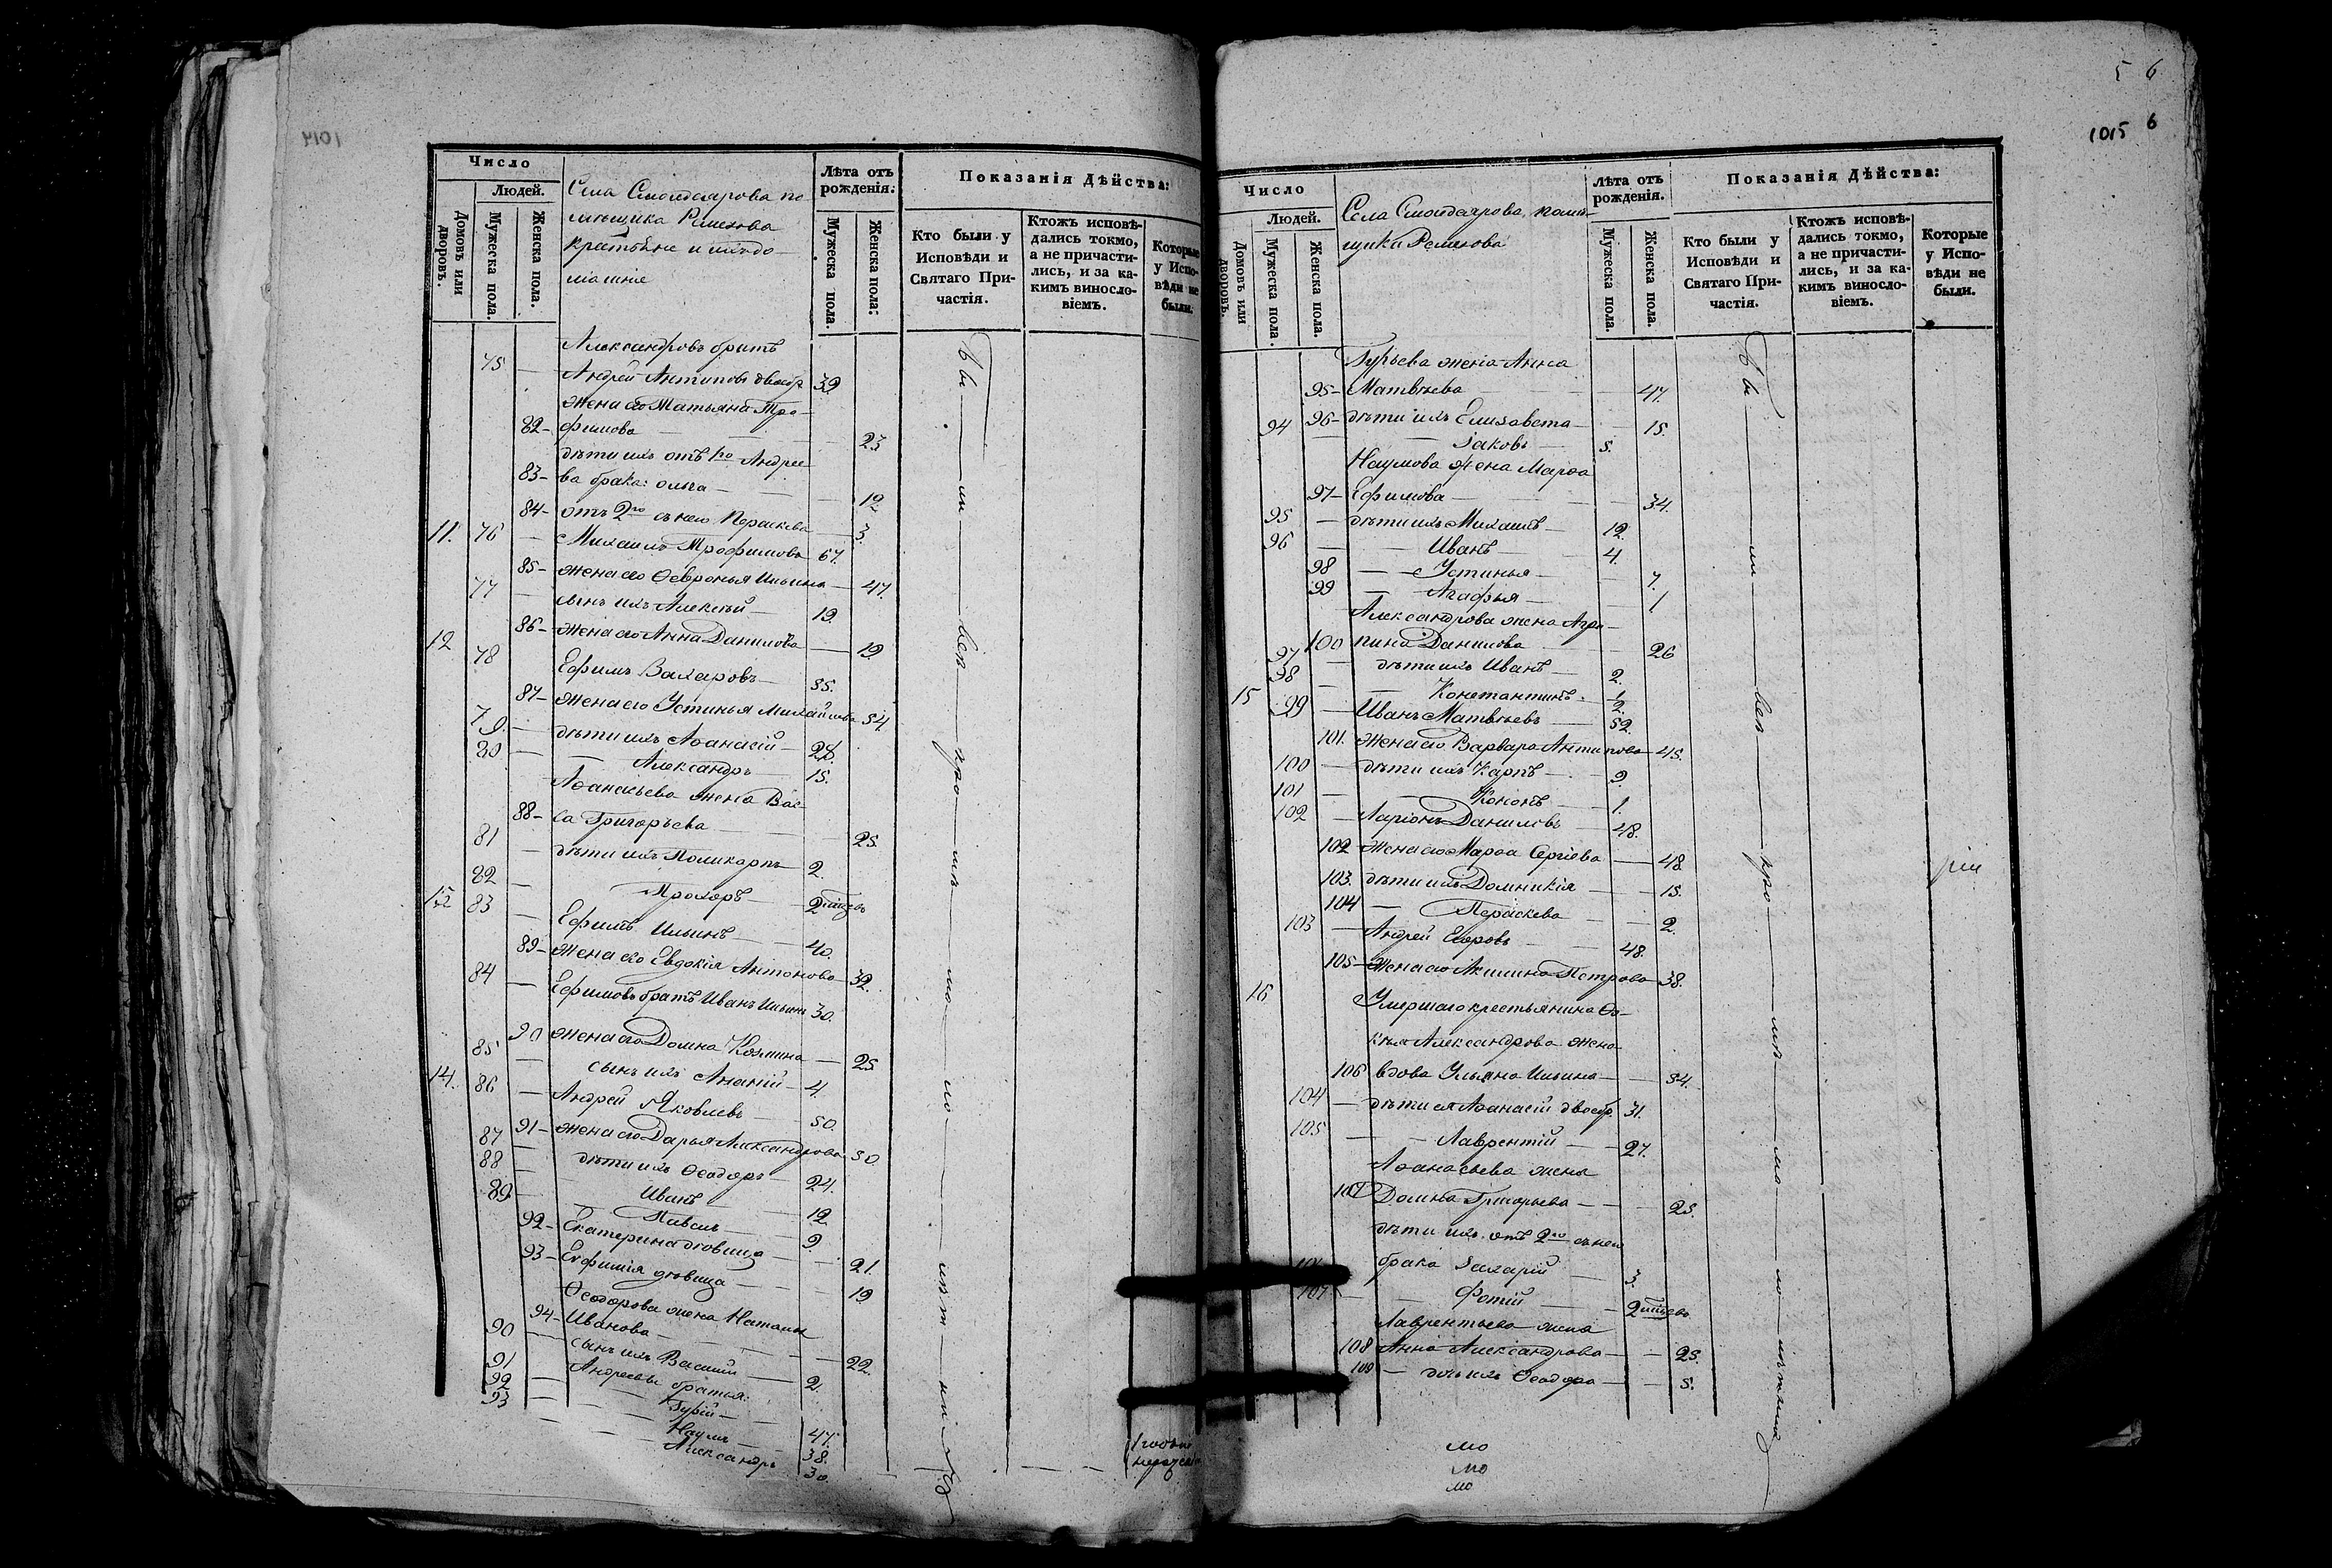 1014
Число
Людей.
Домовъ или дворовъ.
Мужеска пола.
Женска пола.
Села помѣщика крестьяне и ихъ домашніе
Лѣта отъ рожденія:
Мужеска пола.
Женска пола:
Показанія Дѣйства:
Кто были у Исповѣди и Святаго Причастія.
Ктожъ исповѣдались токмо, а не причастились, и за какимъ винословіемъ.
Которые у Исповѣди не были.
Александровъ братъ
75 — Андрей Антиповъ двоебр 39.
жена его Татьяна Тро-
82 — фимова — 23
дѣти ихъ отъ 1го Андрее
83 — ва брака: Ольга — 12
84 — отъ 2го съ нею Параскева — 3.
11. 76 — Михаилъ Трофимовъ 67.
85 — жена его Ѳевронья Ильина — 47.
77 — сынъ ихъ Алексѣй — 19.
86 — жена его Анна Данилова — 19.
12 78 Ефимъ Захаровъ — 55.
87 — жена его Устинья Михайлова 54.
79. — дѣти ихъ Аѳанасій — 28.
80 — Александръ — 15.
Аѳанасьева жена Вас
88 — са Григорьева — 25.
81 — дѣти ихъ Поликарпъ — 2.
82 — Прохоръ — 2
13 83 — Ефимъ Ильинъ — 40.
89 — жена его Евдокія Антонова — 32.
84 — Ефимовъ братъ Иванъ Ильинъ 30.
90 жена его Домна Козмина — 25
85 — сынъ ихъ Ананій — 4.
14. 86 — Андрей Яковлевъ — 50.
91 — жена его Дарья Александрова 50.
87 — дѣти ихъ Ѳеодоръ — 24.
88 — Иванъ — 12
89 — Павелъ — 9.
92 — Екатерина дѣвица — 21.
93 — Евфимія дѣвица — 19
Ѳеодорова жена Наталья
94 — Иванова — 22.
90 — сынъ ихъ Василій — 2.
Андреевы братья:
91 — Гурій — 47.
92 — Наумъ — 38.
93 — Александръ 30.
5 6
1015 6
Число
Людей.
Домовъ или дворовъ.
Мужеска пола
Женска пола.
Села помѣщика
Лѣта отъ рожденія.
Мужеска пола.
Женска пола.
Показанія Дѣйства:
Кто были у Исповѣди и Святаго Причастія.
Ктожъ исповѣдались токмо, а не причастились, и за какимъ винословіемъ.
Которые у Исповѣди не были.
Гурьева жена Анна
95 — Матвѣева — 47.
96 — дѣти ихъ Елизавета — 15.
94 — Іаковъ — 5.
Наумова жена Марѳа
97 — Ефимова — 34.
95 — дѣти ихъ Михаилъ — 12.
96 — Иванъ — 4.
98 — Устинья — 7.
99 — Агафья — 1
Александрова жена Агри-
100 пина Данилова — 26
97 — дѣти ихъ Иванъ — 2.
98 — Константинъ — 1/2.
15 99 — Иванъ Матвѣевъ — 52.
101. жена его Варвара Антипова — 45.
100 — дѣти ихъ Карпъ — 9.
101 — Кононъ — 1.
102 — Ларіонъ Даниловъ — 48.
102 жена его Марѳа Сергіева — 48
103. дѣти ихъ Домникія — 15.
104 — Параскева — 2.
103 — Андрей Егоровъ — 48.
105 — жена его Акилина Петрова — 38.
16 Умершаго крестьянина
Александрова жена
106 вдова Ульяна Ильина — 54.
104 — дѣти ея Аѳанасій двоебр. 31.
105 — Лаврентій — 27.
Аѳанасьева жена
107 Домна Григорьева — 25.
дѣти ихъ отъ 2го съ нею
брака Захарій — 3.
107. — Фотій — 2
Лаврентьева жена
108 Анна Александрова — 25.
109 — дочь ихъ Ѳеодора — 5.